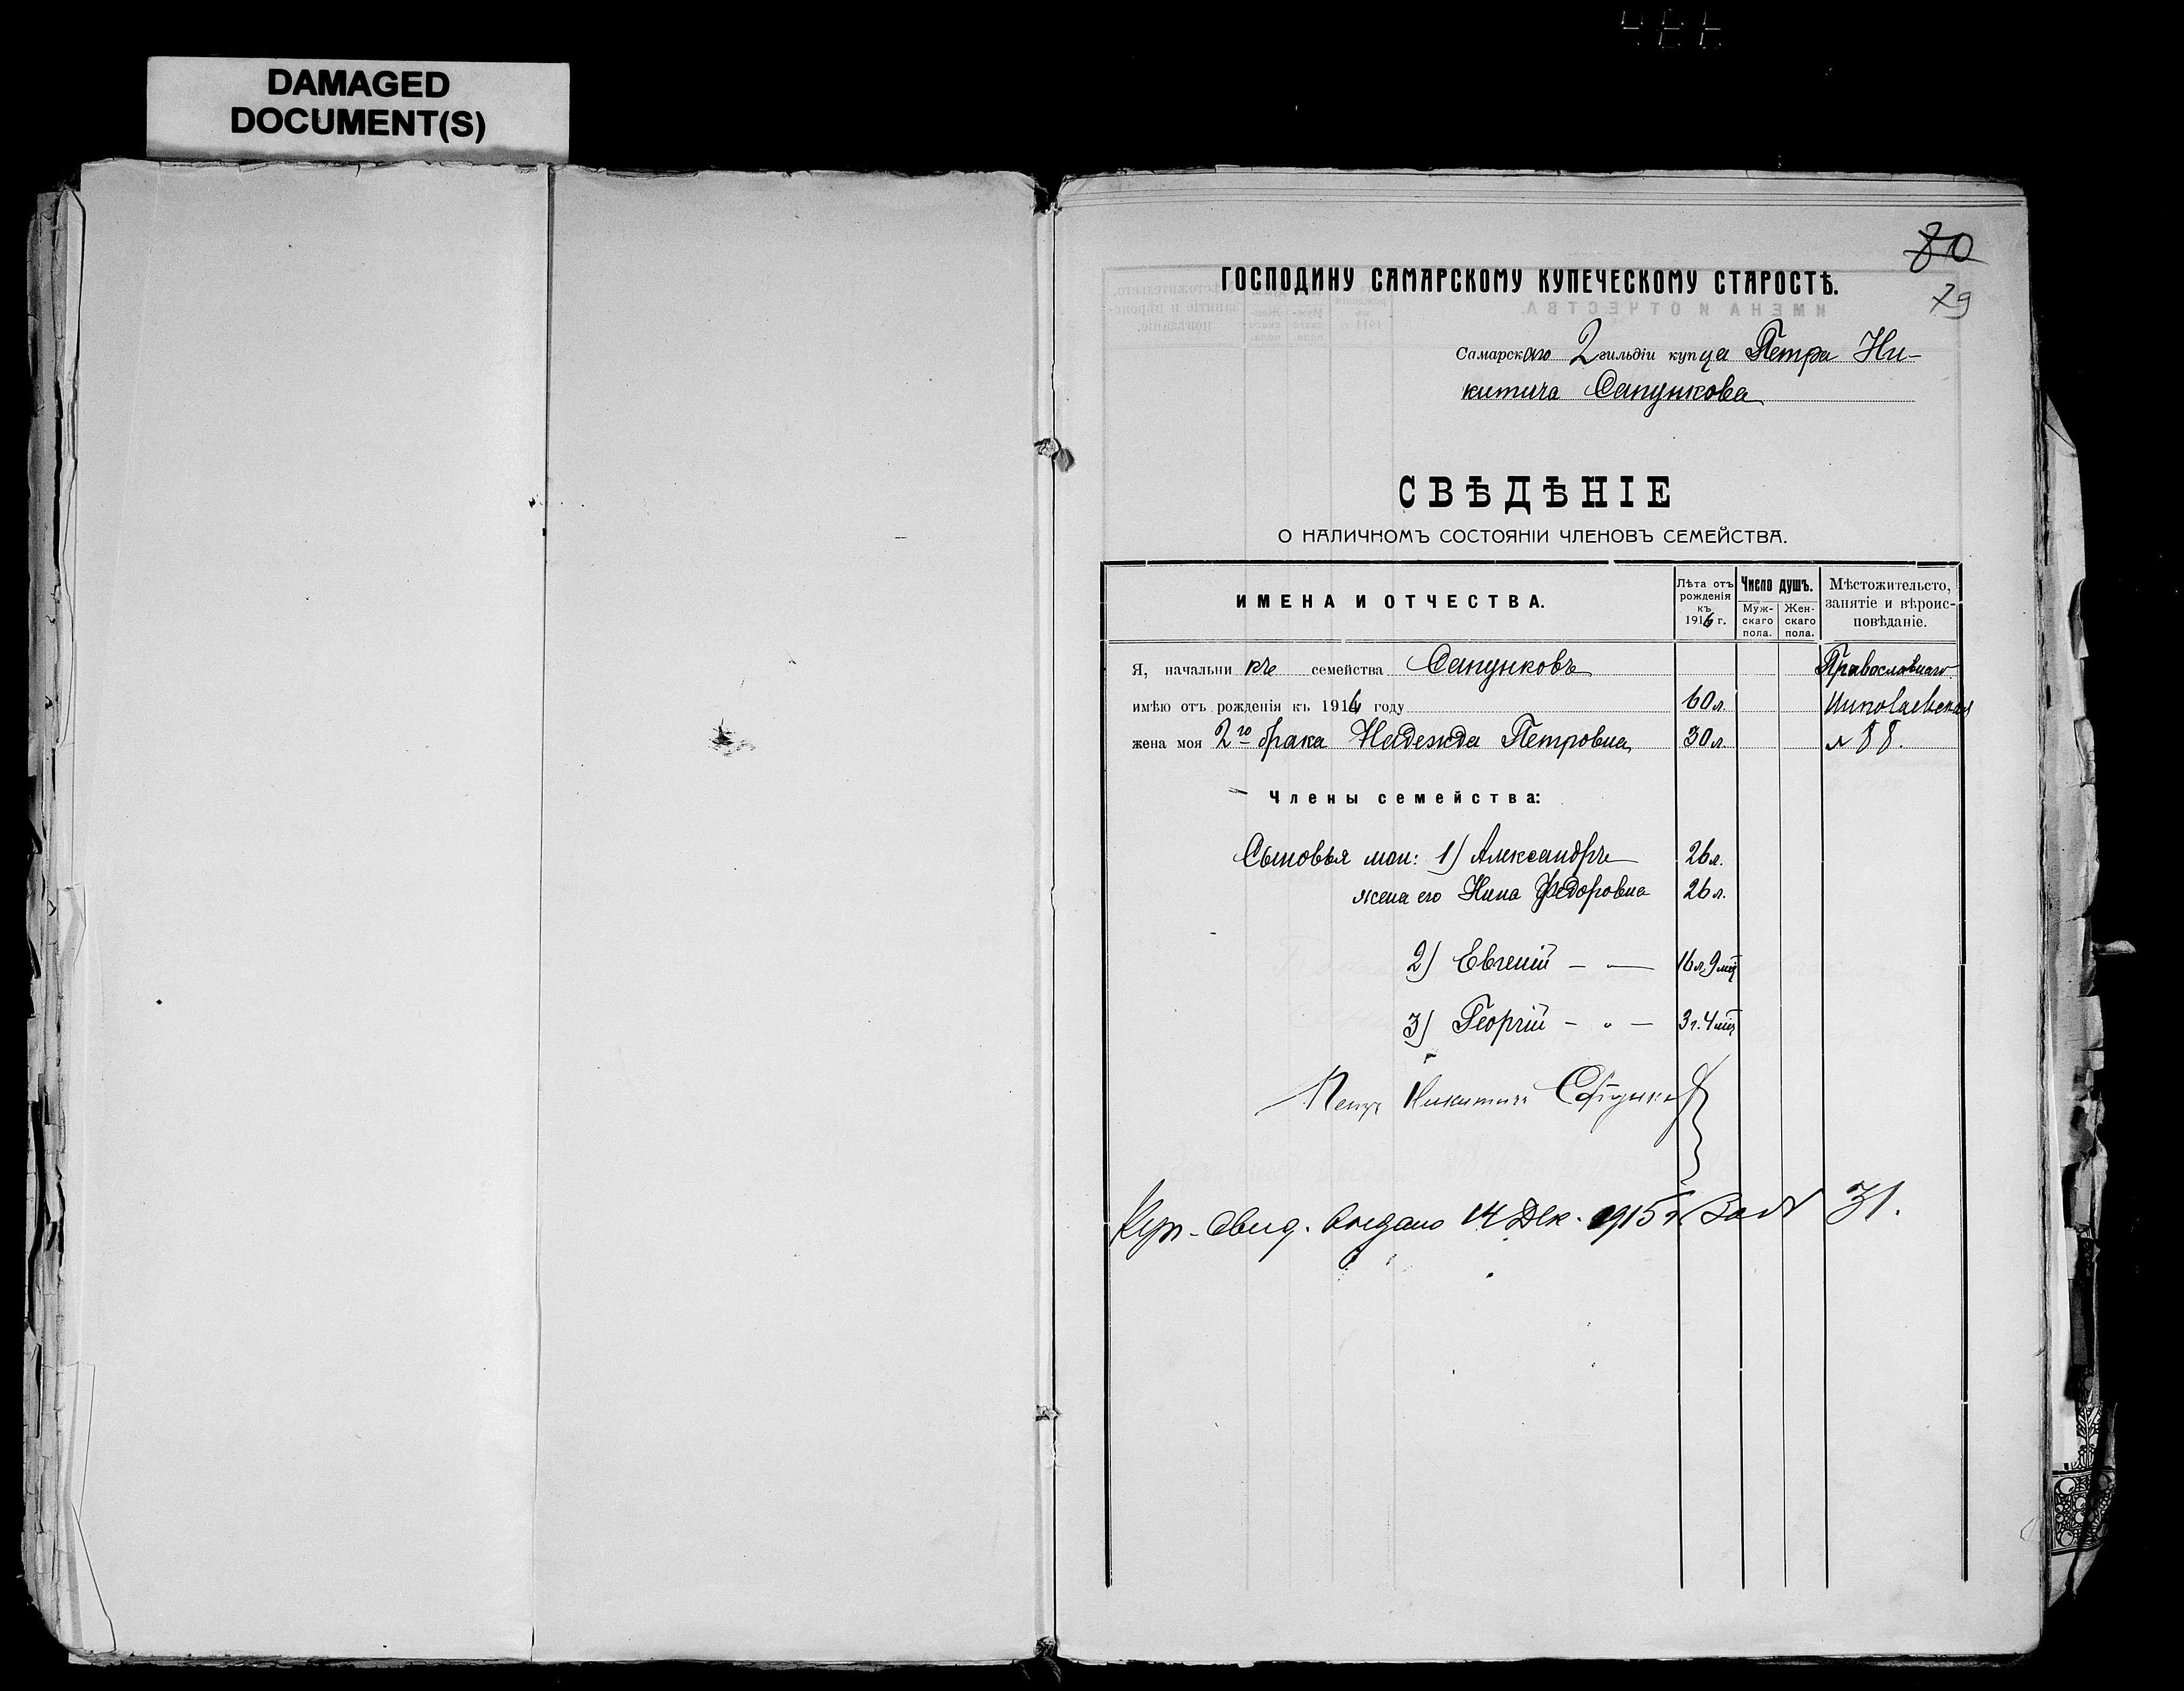 DAMAGED
DOCUMENT(S)
80
79
ГОСПОДИНУ САМАРСКОМУ КУПЕЧЕСКОМУ СТАРОСТѢ.
Самарскаго 2 гильдіи купца Петра Ни-
китича Сапункова
СВѢДѢНІЕ
О НАЛИЧНОМЪ СОСТОЯНІИ ЧЛЕНОВЪ СЕМЕЙСТВА.
ИМЕНА И ОТЧЕСТВА.
Лѣта отъ рожденія къ 1916 г.
Число душъ.
Муж-скаго пола.
Жен-скаго пола.
Мѣстожительсто, занятіе и вѣроис-повѣданіе.
Я, начальникъ семейства Сапунковъ Православнаго
имѣю отъ рожденія къ 1916 году 60 л. Николаевская
жена моя 2го брака Надежда Петровна 30 л. № 88.
Члены семейства:
Сыновья мои: 1) Александръ 26 л.
жена его Нина Федоровна 26 л.
2) Евгеній — — 16 л. 9 мѣс
3) Георгій — " — 3 г. 4 мѣс
Петръ Никитичъ Сапунковъ
Куп. свид. выдано 14 Дек. 1915 г. За № 31.